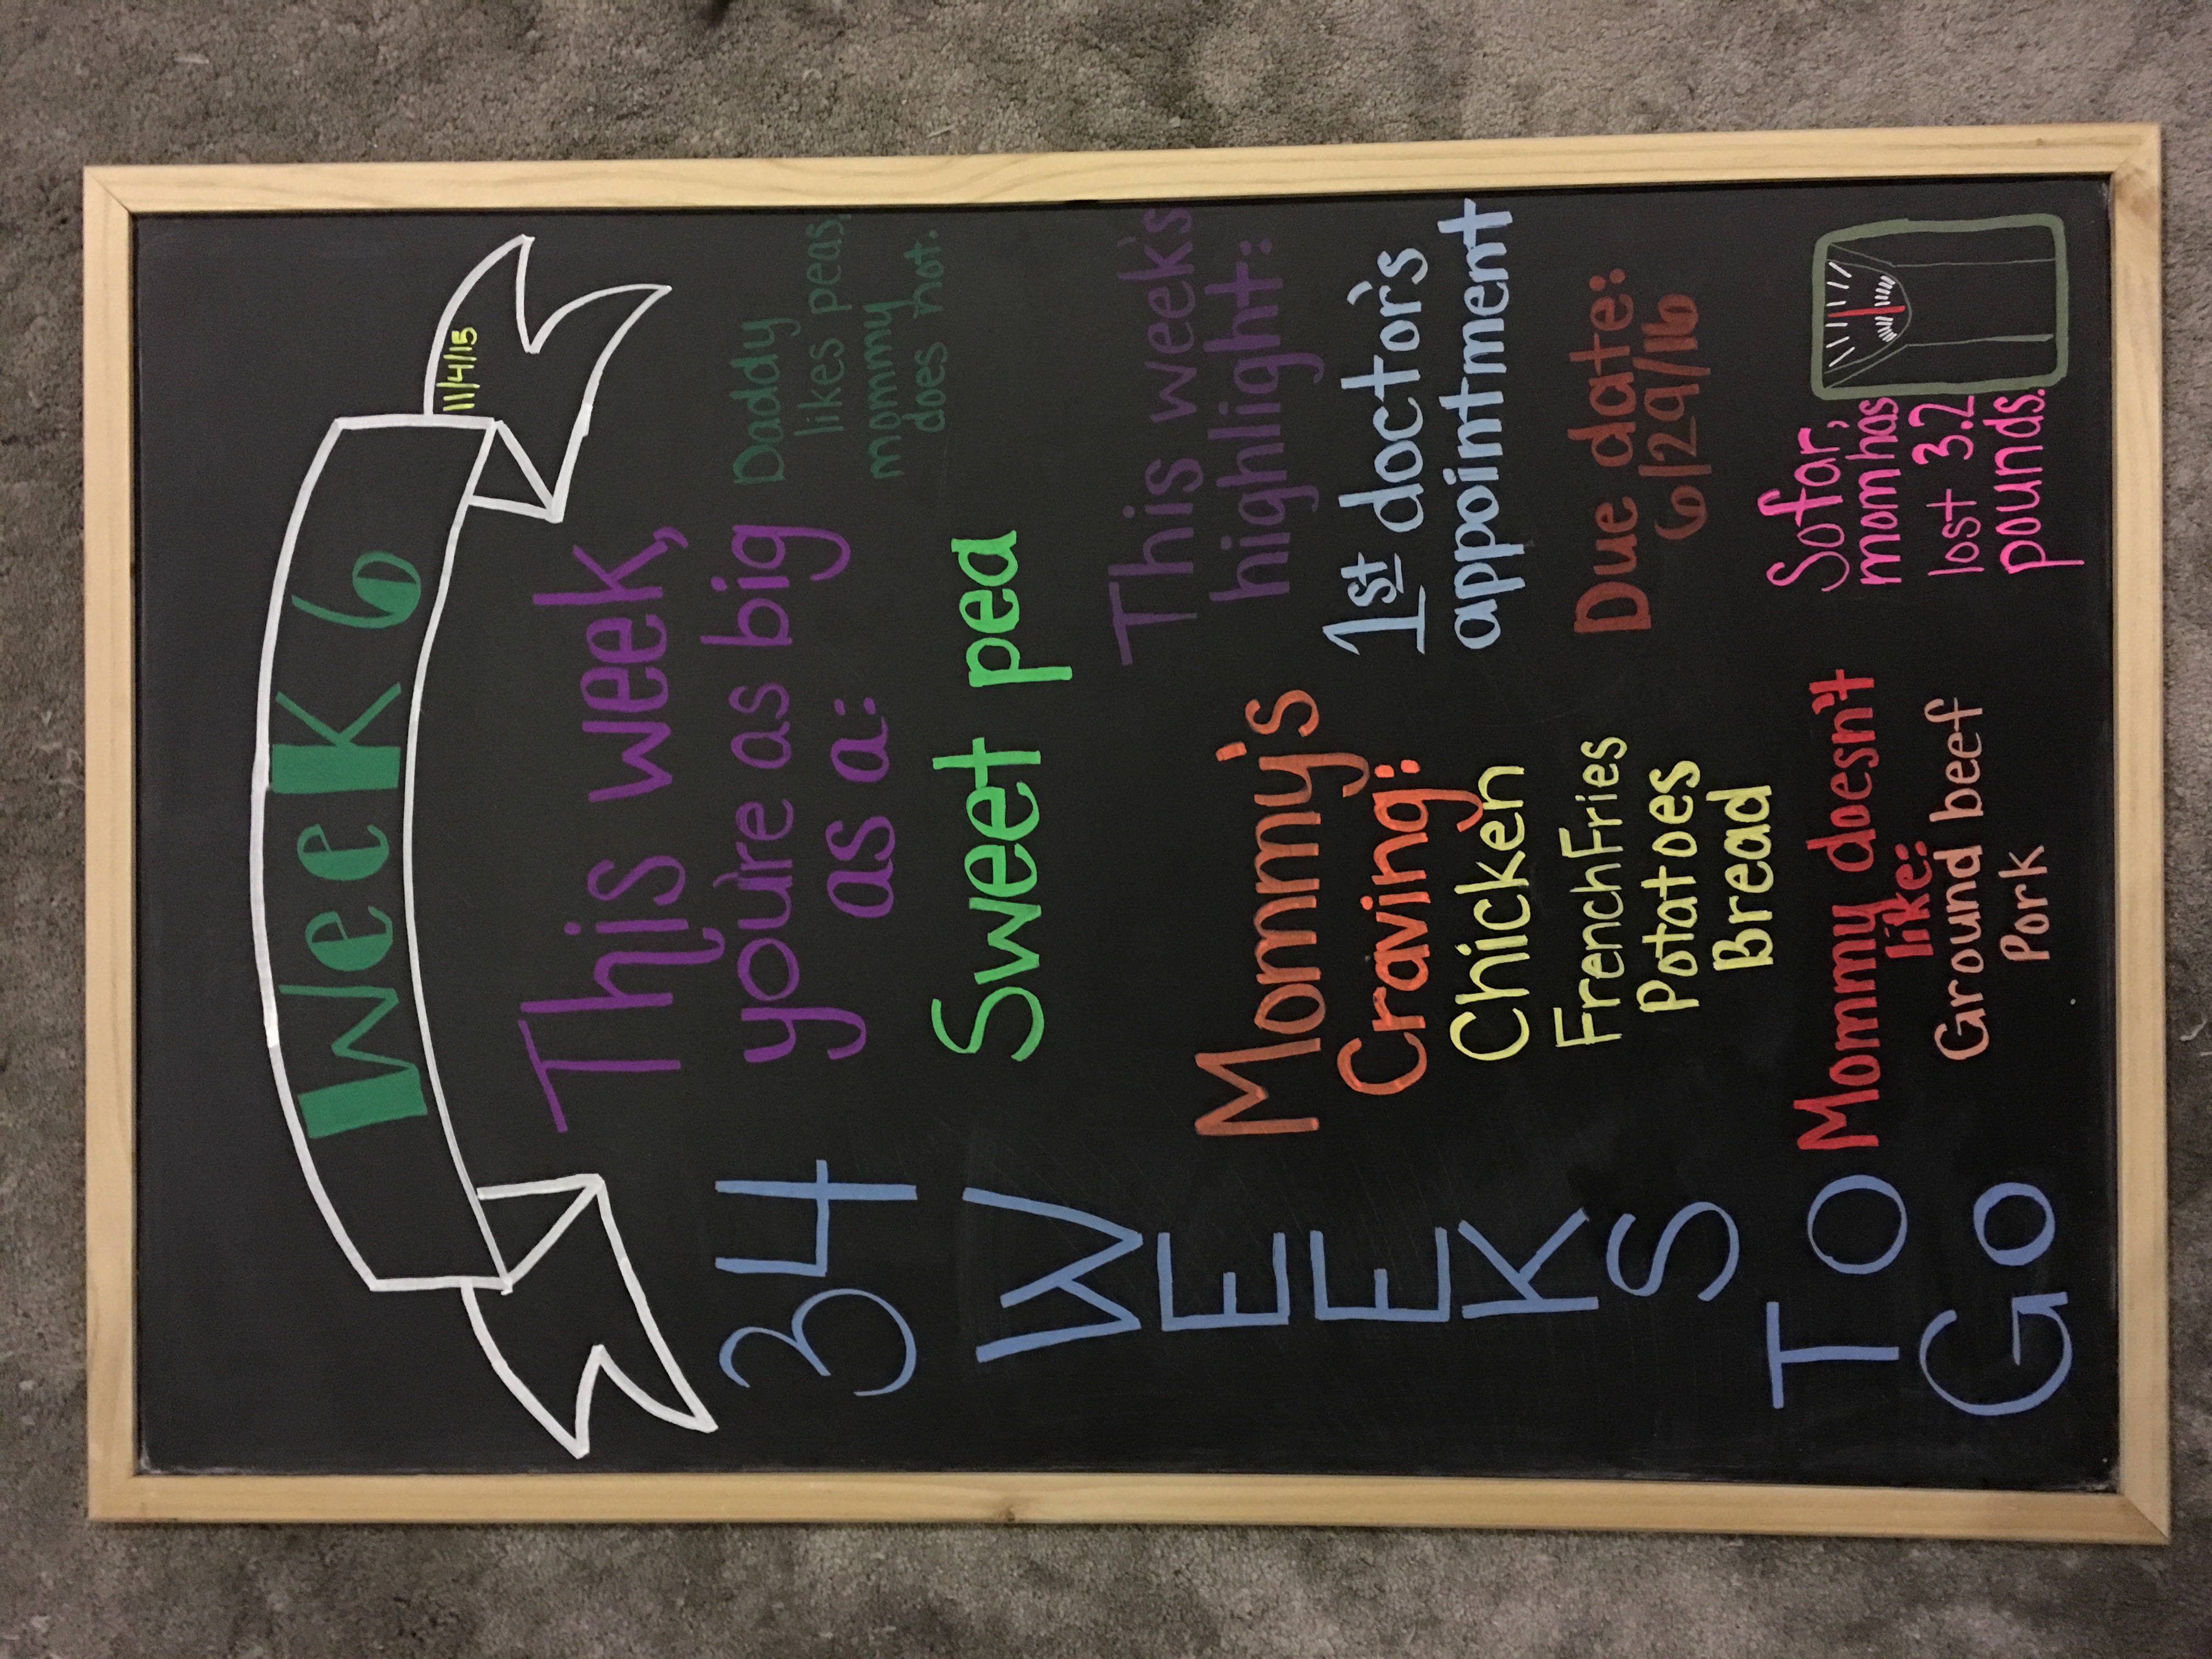 Week 6
11/4/15
This week,
you're as big
as a:
Sweet pea
Daddy
likes peas,
mommy
does not.
34
WEEKS
TO
GO
This week's
highlight:
1st doctor's
appointment
Due date:
6/29/16
Mommy's
Craving:
Chicken
French Fries
Potatoes
Bread
Mommy doesn't
like:
Ground beef
Pork
So far,
mom has
lost 3.2
pounds.